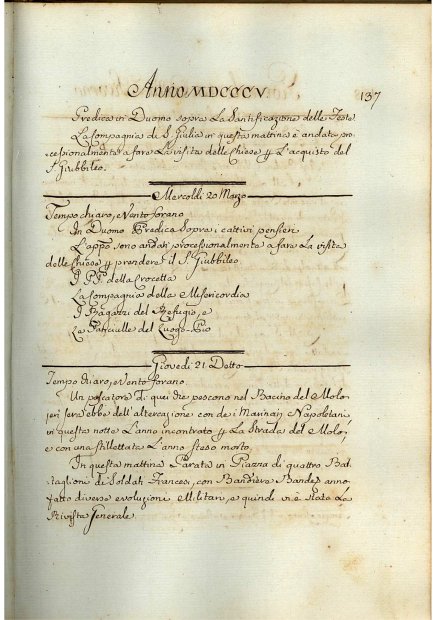 Anno MDCCCV.
137
Predica in Duomo sopra La Santificazione delle Feste
La Compagnia di S. Giulia in questa mattina è andata pro,
cessionalmente a fare La visita delle Chiese p L'acquisto del
S. Giubbileo.
Mercoldì 20 Marzo
Tempo chiaro, e Vento forano
In Duomo Predica Sopra i cattivi pensieri
L'appo sono andati processionalmente a fare La visita
delle Chiese p prendere il S. Giubbileo
I PP. della Crocetta
La Compagnia della Misericordia
I Ragazzi del Refugio, e
Le Fanciulle del Luogo Pio
Giovedì 21 Detto
Tempo chiaro, e Vento forano.
Un pescatore di qui che pescono nel Bacino del Molo,
jeri sera ebbe dell'altercazione con de i Marinaj Napoletani
in questa notte L'anno incontrato p La Strada del Molo,
e con una stillettata L'anno steso morto.
In questa mattina Parata in Piazza di quattro Bat,
taglioni di Soldati Francesi, con Bandiere Bande, anno
fatto diverse evoluzioni Militari, e quindi vi è stata La
Rivista Generale